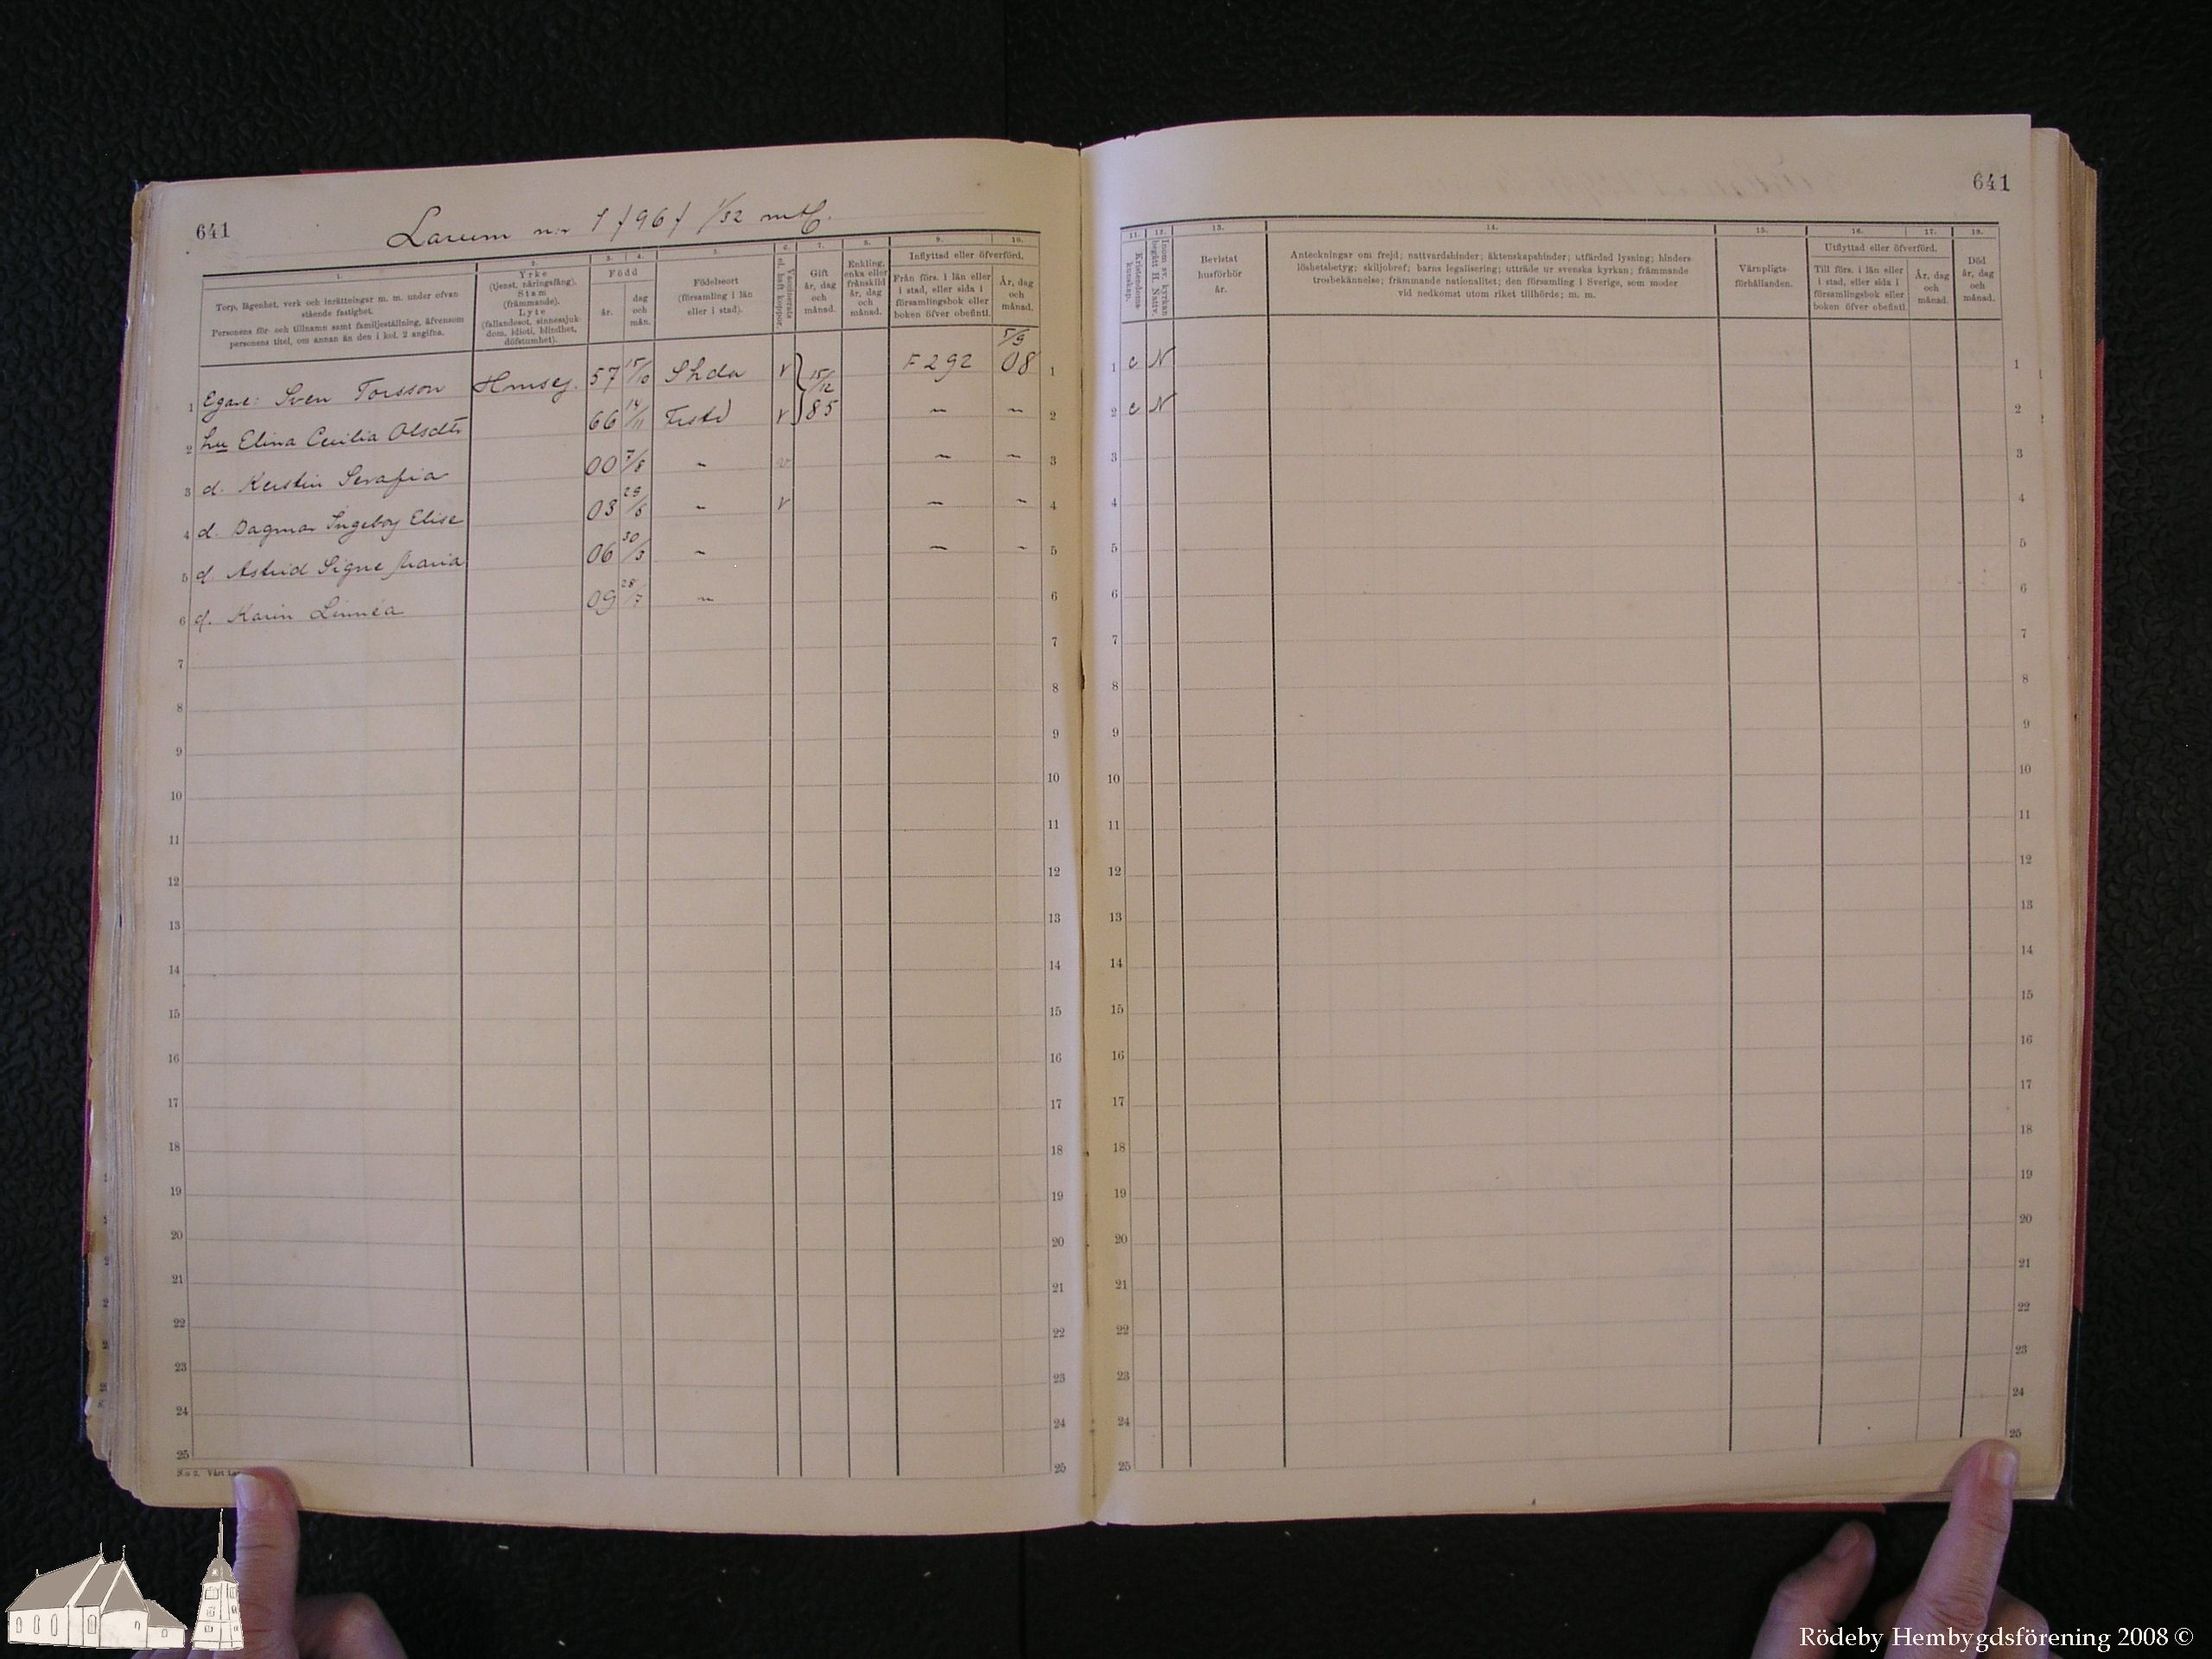 641
Larum n:r 1 /96/ 1/32 mtl.
1. 2. 3. 4. 5. 6. 7. 8. 9. 10.
Torp, lägenhet, verk och inrättningar m. m. under ofvan
stående fastighet.
Personens för- och tillnamn samt familjeställning, äfvensom
personens titel, om annan än den i kol. 2 angifna.
Yrke
(tjenst, näringsfång).
Stam
(främmande).
Lyte
(fallandesot, sinnessjuk-
dom, idioti, blindhet,
döfstumhet).
Född
år.
dag
och
mån.
Födelseort
(församling i län
eller i stad).
Vaccinerats
el. haft koppor.
Gift
år, dag
och
månad.
Enkling,
enka eller
frånskild
år, dag
och
månad.
Inflyttad eller öfverförd.
Från förs. i län eller
i stad, eller sida i
församlingsbok eller
boken öfver obefintl.
År, dag
och
månad.
1 Egare: Sven Torsson Hmseg. 57 15/10 Shda v 15/12 85 F 292 5/9 08 1
2 hu Elina Cecilia Olsdtr 66 14/11 v " " 2
3 d. Kerstin Serafia 00 7/8 " v " " 3
4 d. Dagmar Ingeborg Elise 03 29/5 " v " " 4
5 d. Astrid Signe Maria 06 30/3 " " " 5
6 d. Karin Linnéa 09 28/7 " 6
7 7
8 8
9 9
10 10
11 11
12 12
13 13
14 14
15 15
16 16
17 17
18 18
19 19
20 20
21 21
22 22
23 23
24 24
25 25
N:o 2. Vårt
641
11. 12. 13. 14. 15. 16. 17. 18.
Kristendoms-
kunskap.
Inom sv. kyrkan
begått H. Nattv.
Bevistat
husförhör
år.
Anteckningar om frejd; nattvardshinder; äktenskapshinder; utfärdad lysning; hinders-
löshetsbetyg; skiljobref; barns legalisering; utträde ur svenska kyrkan; främmande
trosbekännelse; främmande nationalitet; den församling i Sverige, som moder
vid nedkomst utom riket tillhörde; m. m.
Värnpligts-
förhållanden.
Utflyttad eller öfverförd.
Till förs. i län eller
i stad, eller sida i
församlingsbok eller
boken öfver obefintl.
År, dag
och
månad.
Död
år, dag
och
månad.
1 c N 1
2 c N 2
3 3
4 4
5 5
6 6
7 7
8 8
9 9
10 10
11 11
12 12
13 13
14 14
15 15
16 16
17 17
18 18
19 19
20 20
21 21
22 22
23 23
24 24
25 25
Rödeby Hembygdsförening 2008 ©